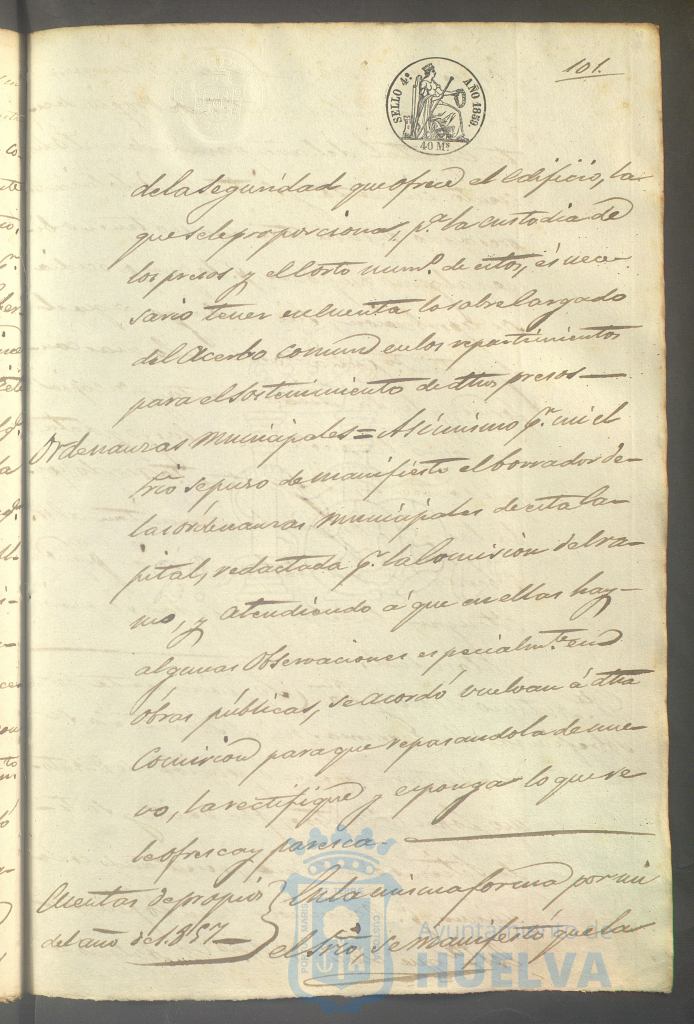 101.
SELLO 4º AÑO 1859.
40 Ms
de la seguridad que ofrece el edificio, la
que se le proporciona, pª la custodia de
los presos y el corto numº. de estos, és nece-
sario tener en cuenta lo sobrecargado
del Acerbo comun en los repartimientos
para el sostenimiento de dhos presos—
Ordenanzas Municipales = Asimismo pr. mi el
Srio se puso de manifiesto el borrador de
las ordenanzas Municipales de esta Ca-
pital, redactada pr. la Comision del ra-
mo, y atendiendo á que en ellas hay
algunas Observaciones especialmte. en
óbras públicas, se acordó vuelvan á dha
Comision para que repasandola de nue-
vo, la rectifique y esponga lo que se
le ofresca y paresca.
Cuentas de propios
del año de 1.857—
En la misma forma por mi
el Srio, se manifestó que la
Ayuntamiento de
HUELVA